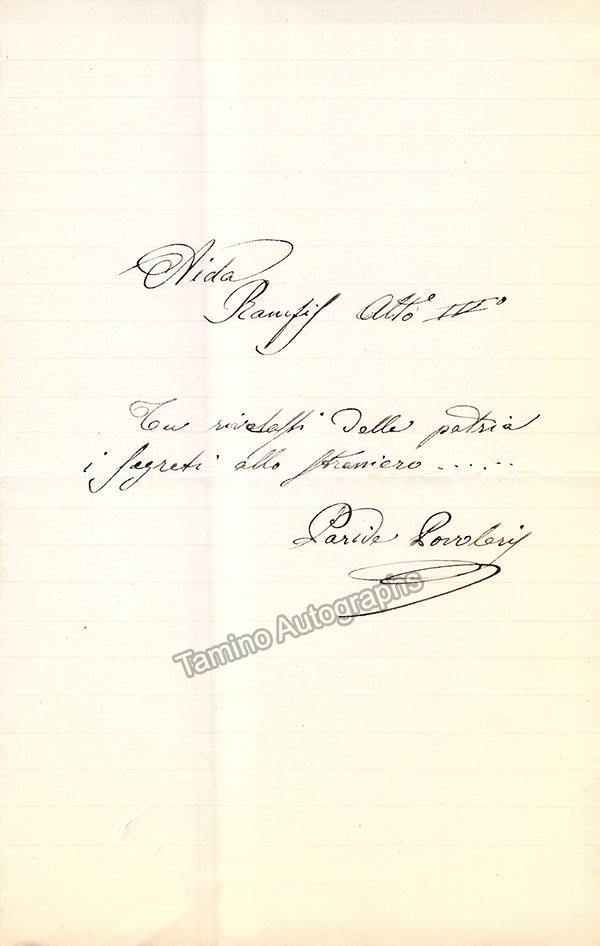 Aida
Ramfis Atto IVº
Tu rivelasti della patria
i segreti allo straniero......
Paride Povoleri
Tamino Autographs